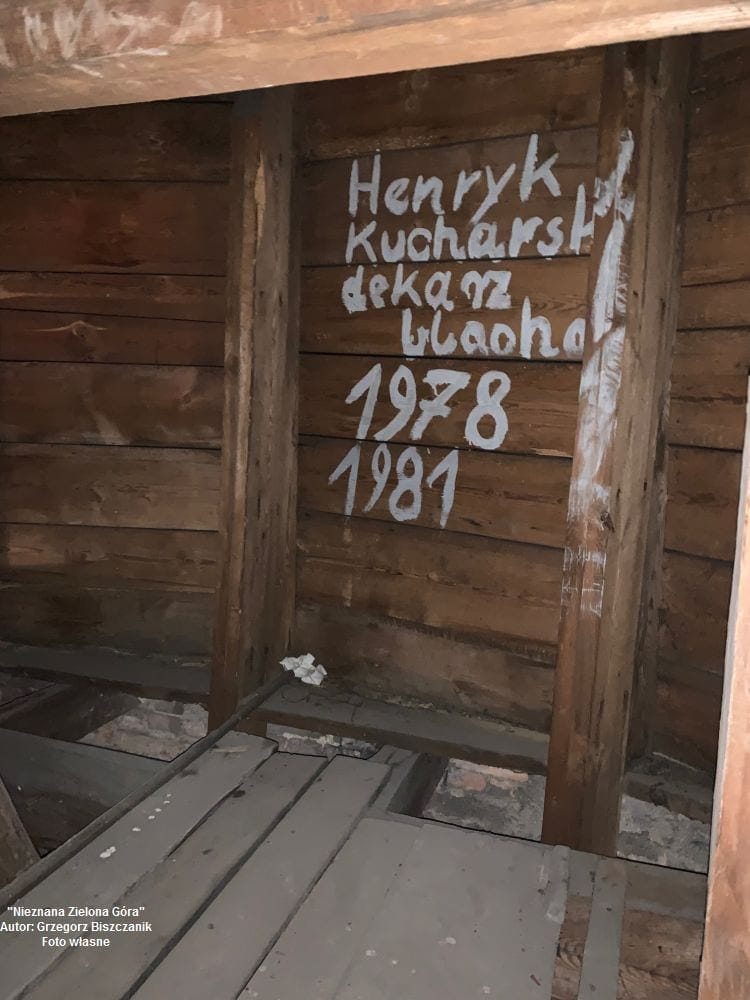 Henryk
Kucharsk
dekarz
blacha
1978
1981
"Nieznana Zielona Góra"
Autor: Grzegorz Biszczanik
Foto własne